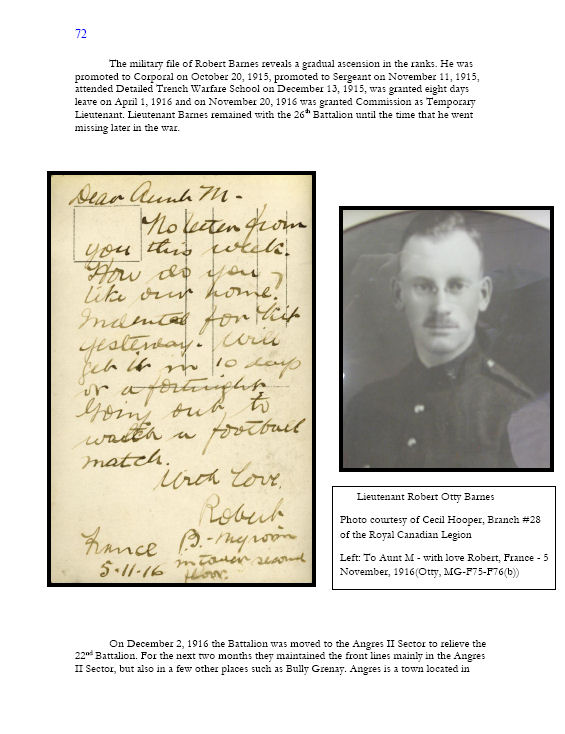 72
The military file of Robert Barnes reveals a gradual ascension in the ranks. He was
promoted to Corporal on October 20, 1915, promoted to Sergeant on November 11, 1915,
attended Detailed Trench Warfare School on December 13, 1915, was granted eight days
leave on April 1, 1916 and on November 20, 1916 was granted Commission as Temporary
Lieutenant. Lieutenant Barnes remained with the 26th Battalion until the time that he went
missing later in the war.
Dear Aunt M -
No letter from
you this week.
How do you
like our home?
Indented for kit
yesterday. Will
get it in 10 days
or a fortnight
Going out to
watch a football
match.
With Love,
Robert
France B. - my room
5-11-16 in tower second
floor.
Lieutenant Robert Otty Barnes
Photo courtesy of Cecil Hooper, Branch #28
of the Royal Canadian Legion
Left: To Aunt M - with love Robert, France - 5
November, 1916(Otty, MG-F75-F76(b))
On December 2, 1916 the Battalion was moved to the Angres II Sector to relieve the
22nd Battalion. For the next two months they maintained the front lines mainly in the Angres
II Sector, but also in a few other places such as Bully Grenay. Angres is a town located in